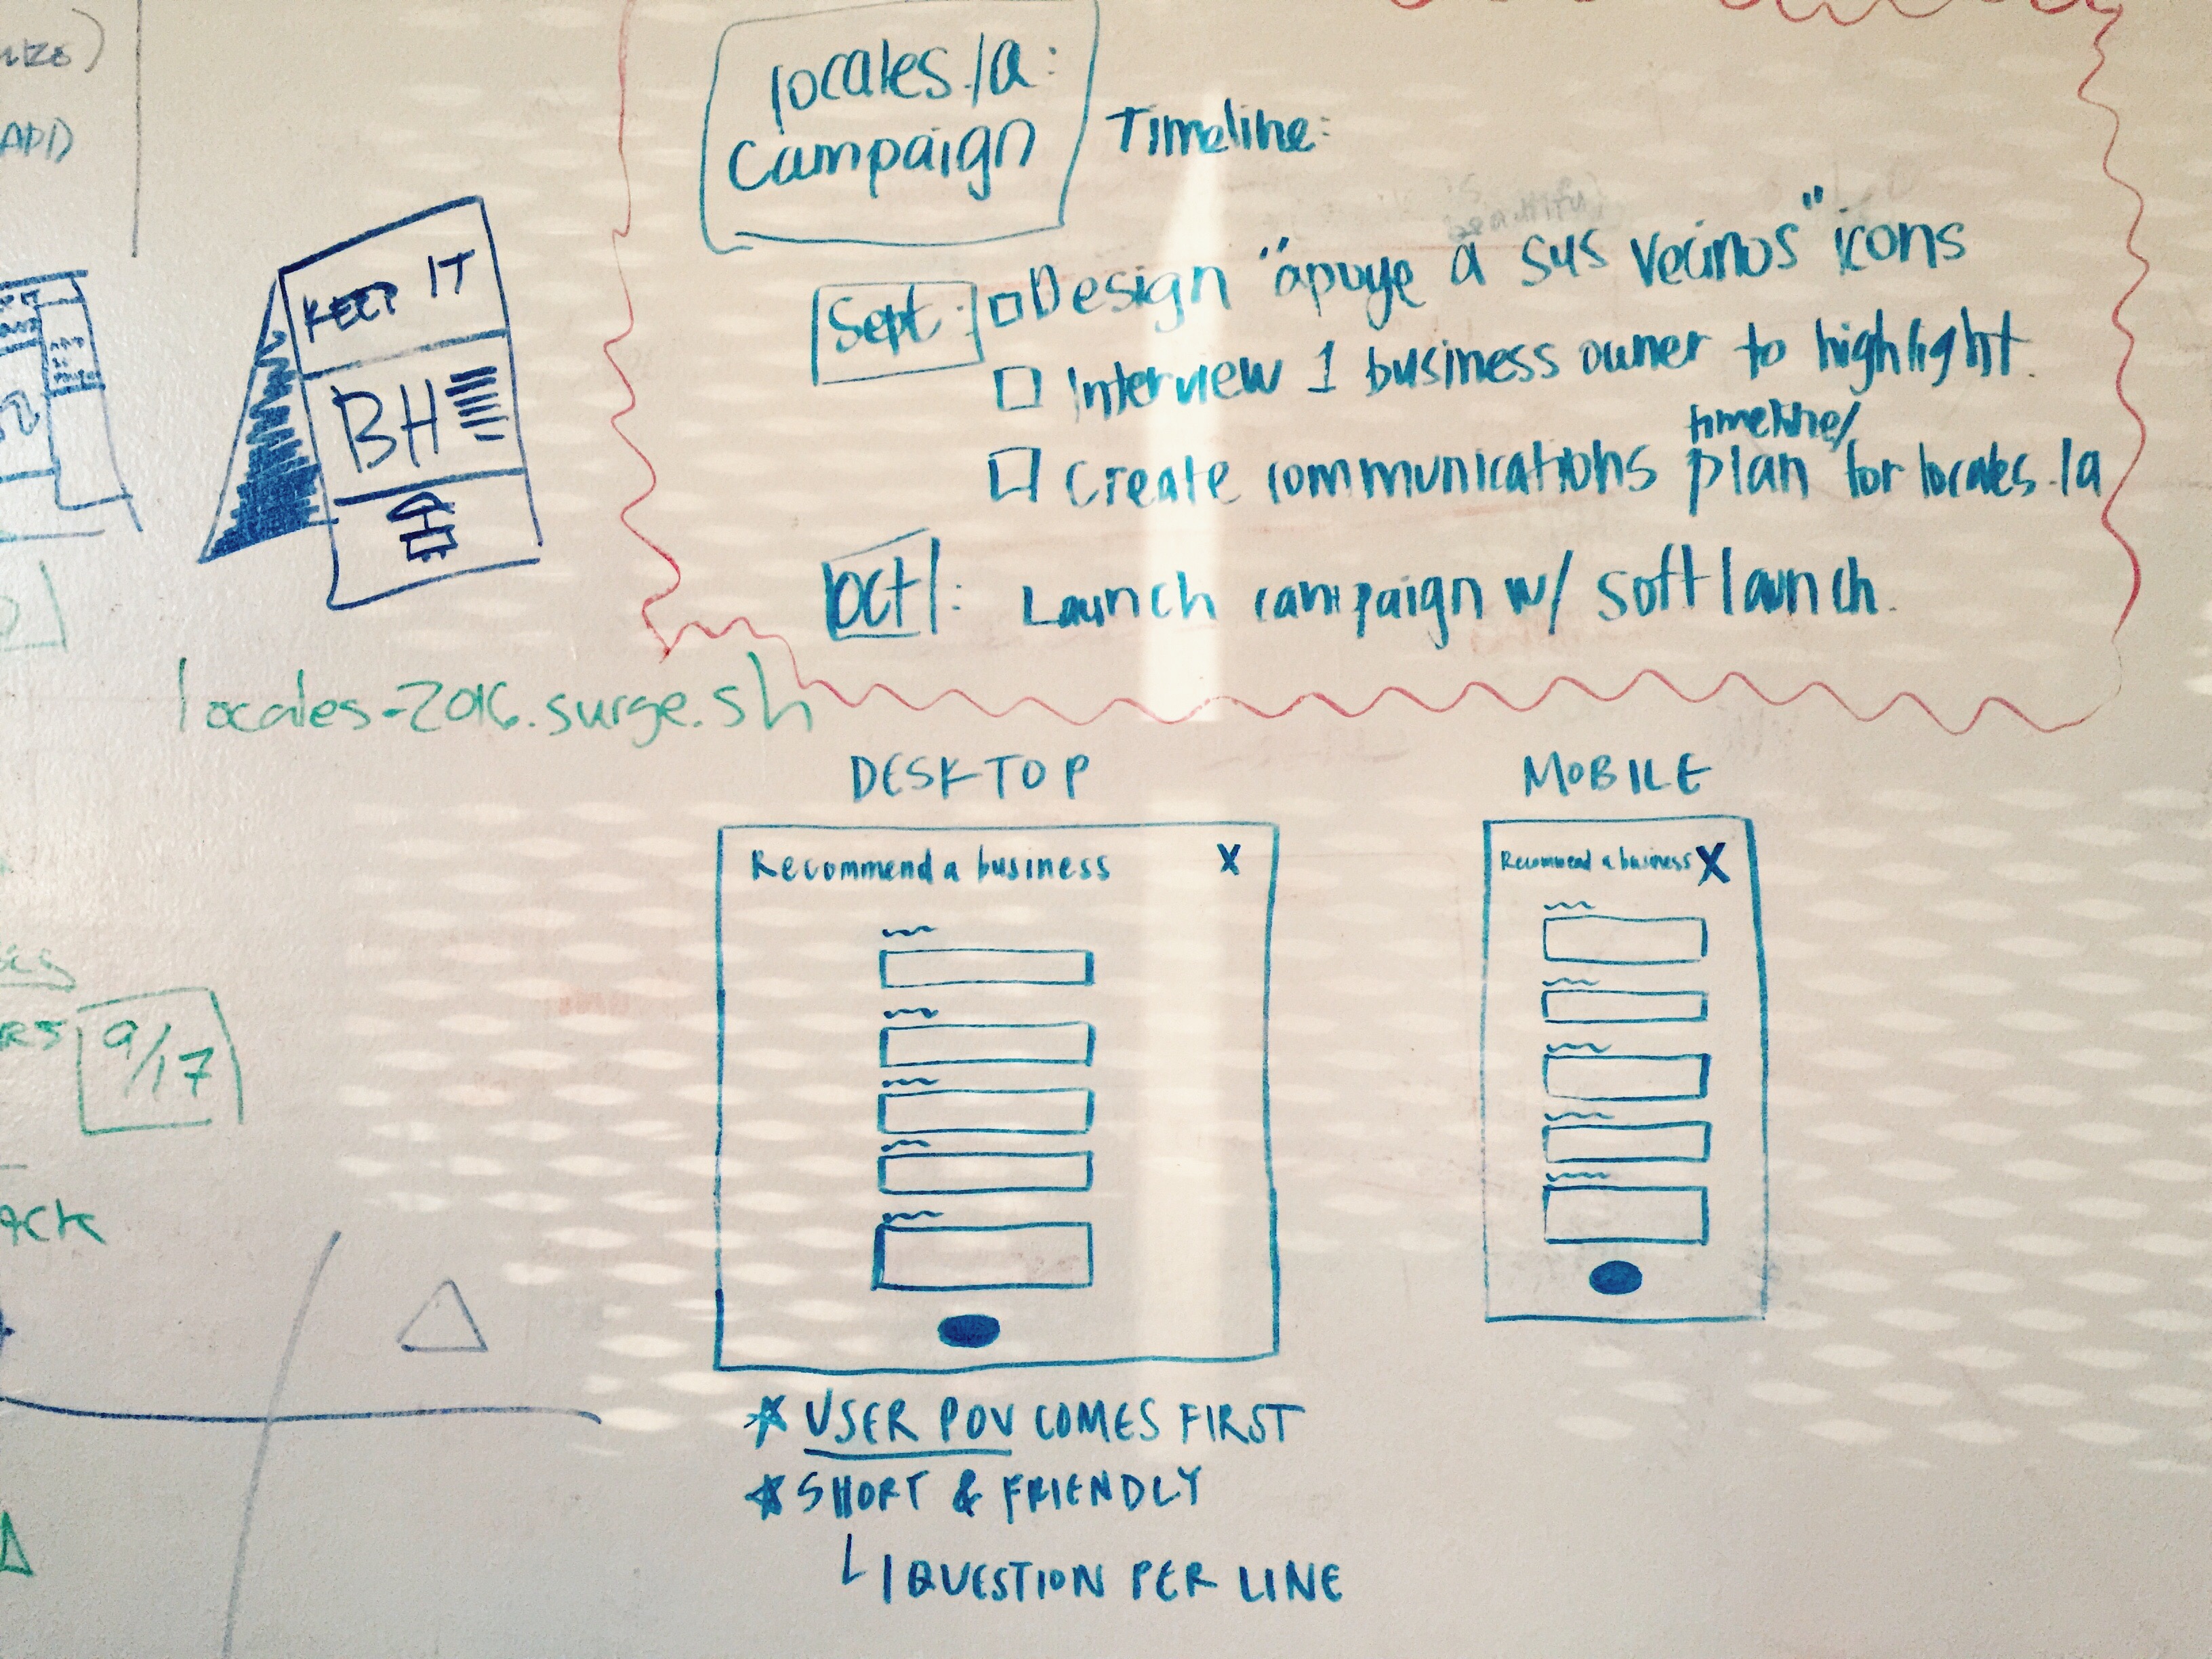 locales.la:
Campaign
Timeline:
Sept:
Design "apoye a sus vecinos" icons
Interview 1 business owner to highlight.
timeline/
Create communications plan for locales.la
Oct:
Launch campaign w/ soft launch.
KEEP IT
BH
locales-2016.surge.sh
DESKTOP
Recommend a business X
MOBILE
Recommend a business X
9/17
* USER POV COMES FIRST
* SHORT & FRIENDLY
1 QUESTION PER LINE